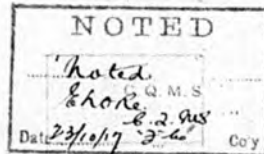 NOTED
Noted
C.Q.M.S
C.Q.MS
Date 23/10/17 "F Co" Coy